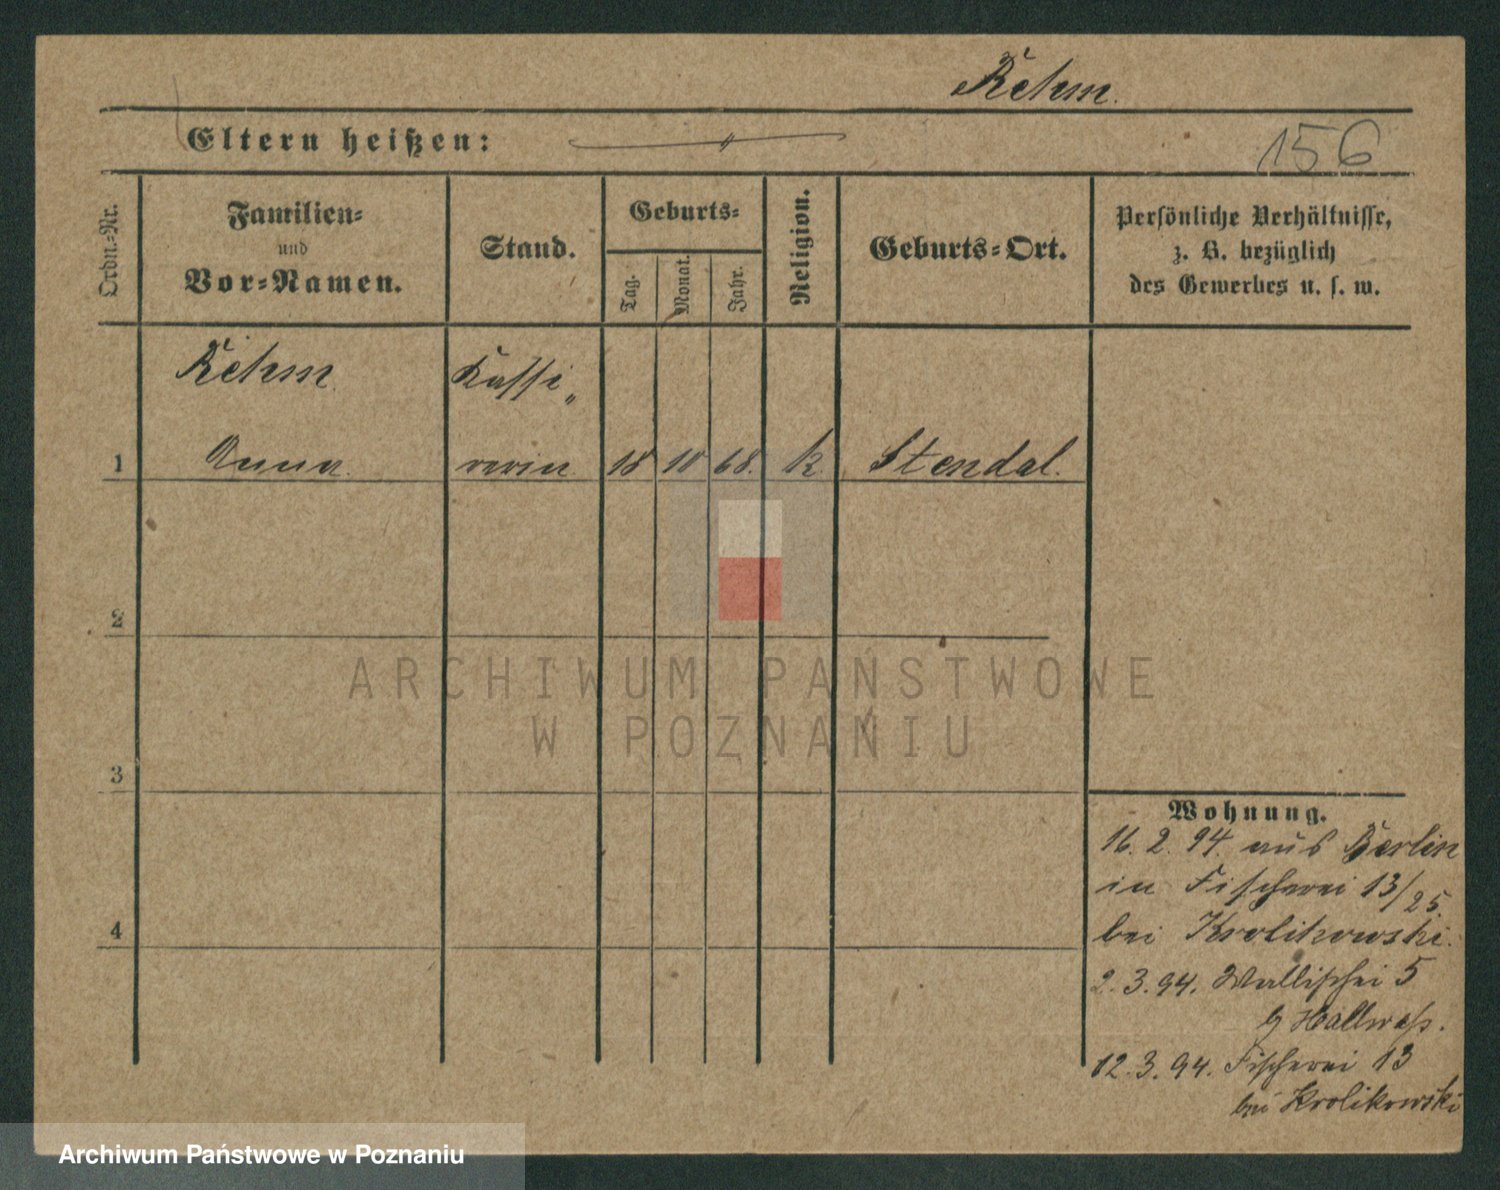 Rehm.
Eltern heißen: "
156
Ordn.-Nr.
Familien-
und
Vor-Namen.
Stand.
Geburts-
Tag.
Monat.
Jahr.
Religion.
Geburts-Ort.
Persönliche Verhältnisse,
z. B. bezüglich
des Gewerbes u. s. w.
Rehm Kassi„
1 Anna rerin 18 10 68. k Stendal.
2
ARCHIWUM PAŃSTWOWE
W POZNANIU
3
Wohnung.
16. 2. 94. aus Berlin
in Fischerei 13/25.
4
bei Krolikowski.
2. 3. 94. Wallischei 5
b Hallwass.
12. 3. 94. Fischerei 13
bei Krolikowski
Archiwum Państwowe w Poznaniu